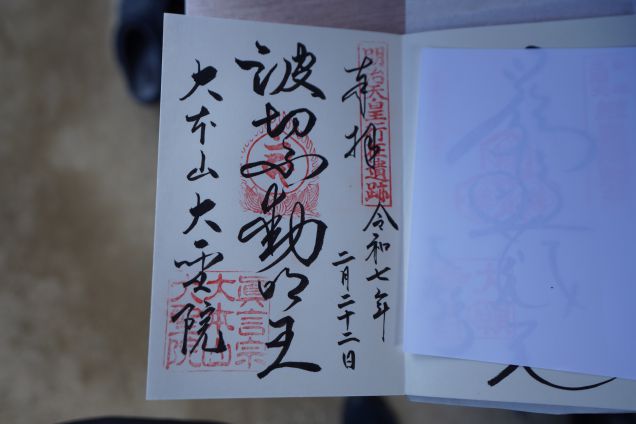 明治天皇行在遺跡
奉拝
令和七年
二月二十二日
波切不動明王
大本山大聖院
眞言宗
大本山
大聖院